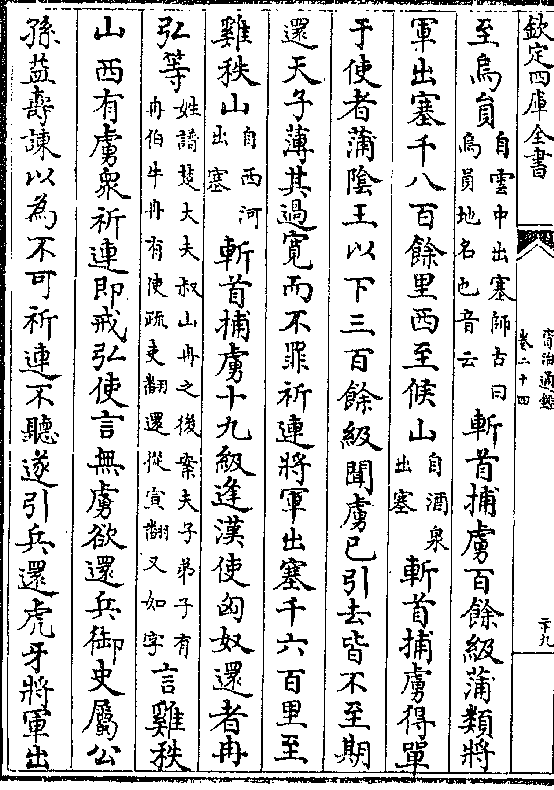 欽定四庫全書
資治通鑑
卷二十四
二十九
至烏員自雲中出塞師古曰烏員地名也音云斬首捕虜百餘級蒲類將
軍出塞千八百餘里西至候山自酒泉出塞斬首捕虜得單
于使者蒲陰王以下三百餘級聞虜已引去皆不至期
還天子薄其過寬而不罪祈連將軍出塞千六百里至
雞秩山自西河出塞斬首捕虜十九級逢漢使匈奴還者冉
弘等姓譜楚大夫叔山冉之後案夫子弟子有冉伯牛冉有使疏吏翻還從宣翻又如字言雞秩
山西有虜衆祈連即戒弘使言無虜欲還兵御史屬公
孫益壽諫以為不可祈連不聽遂引兵還虎牙將軍出